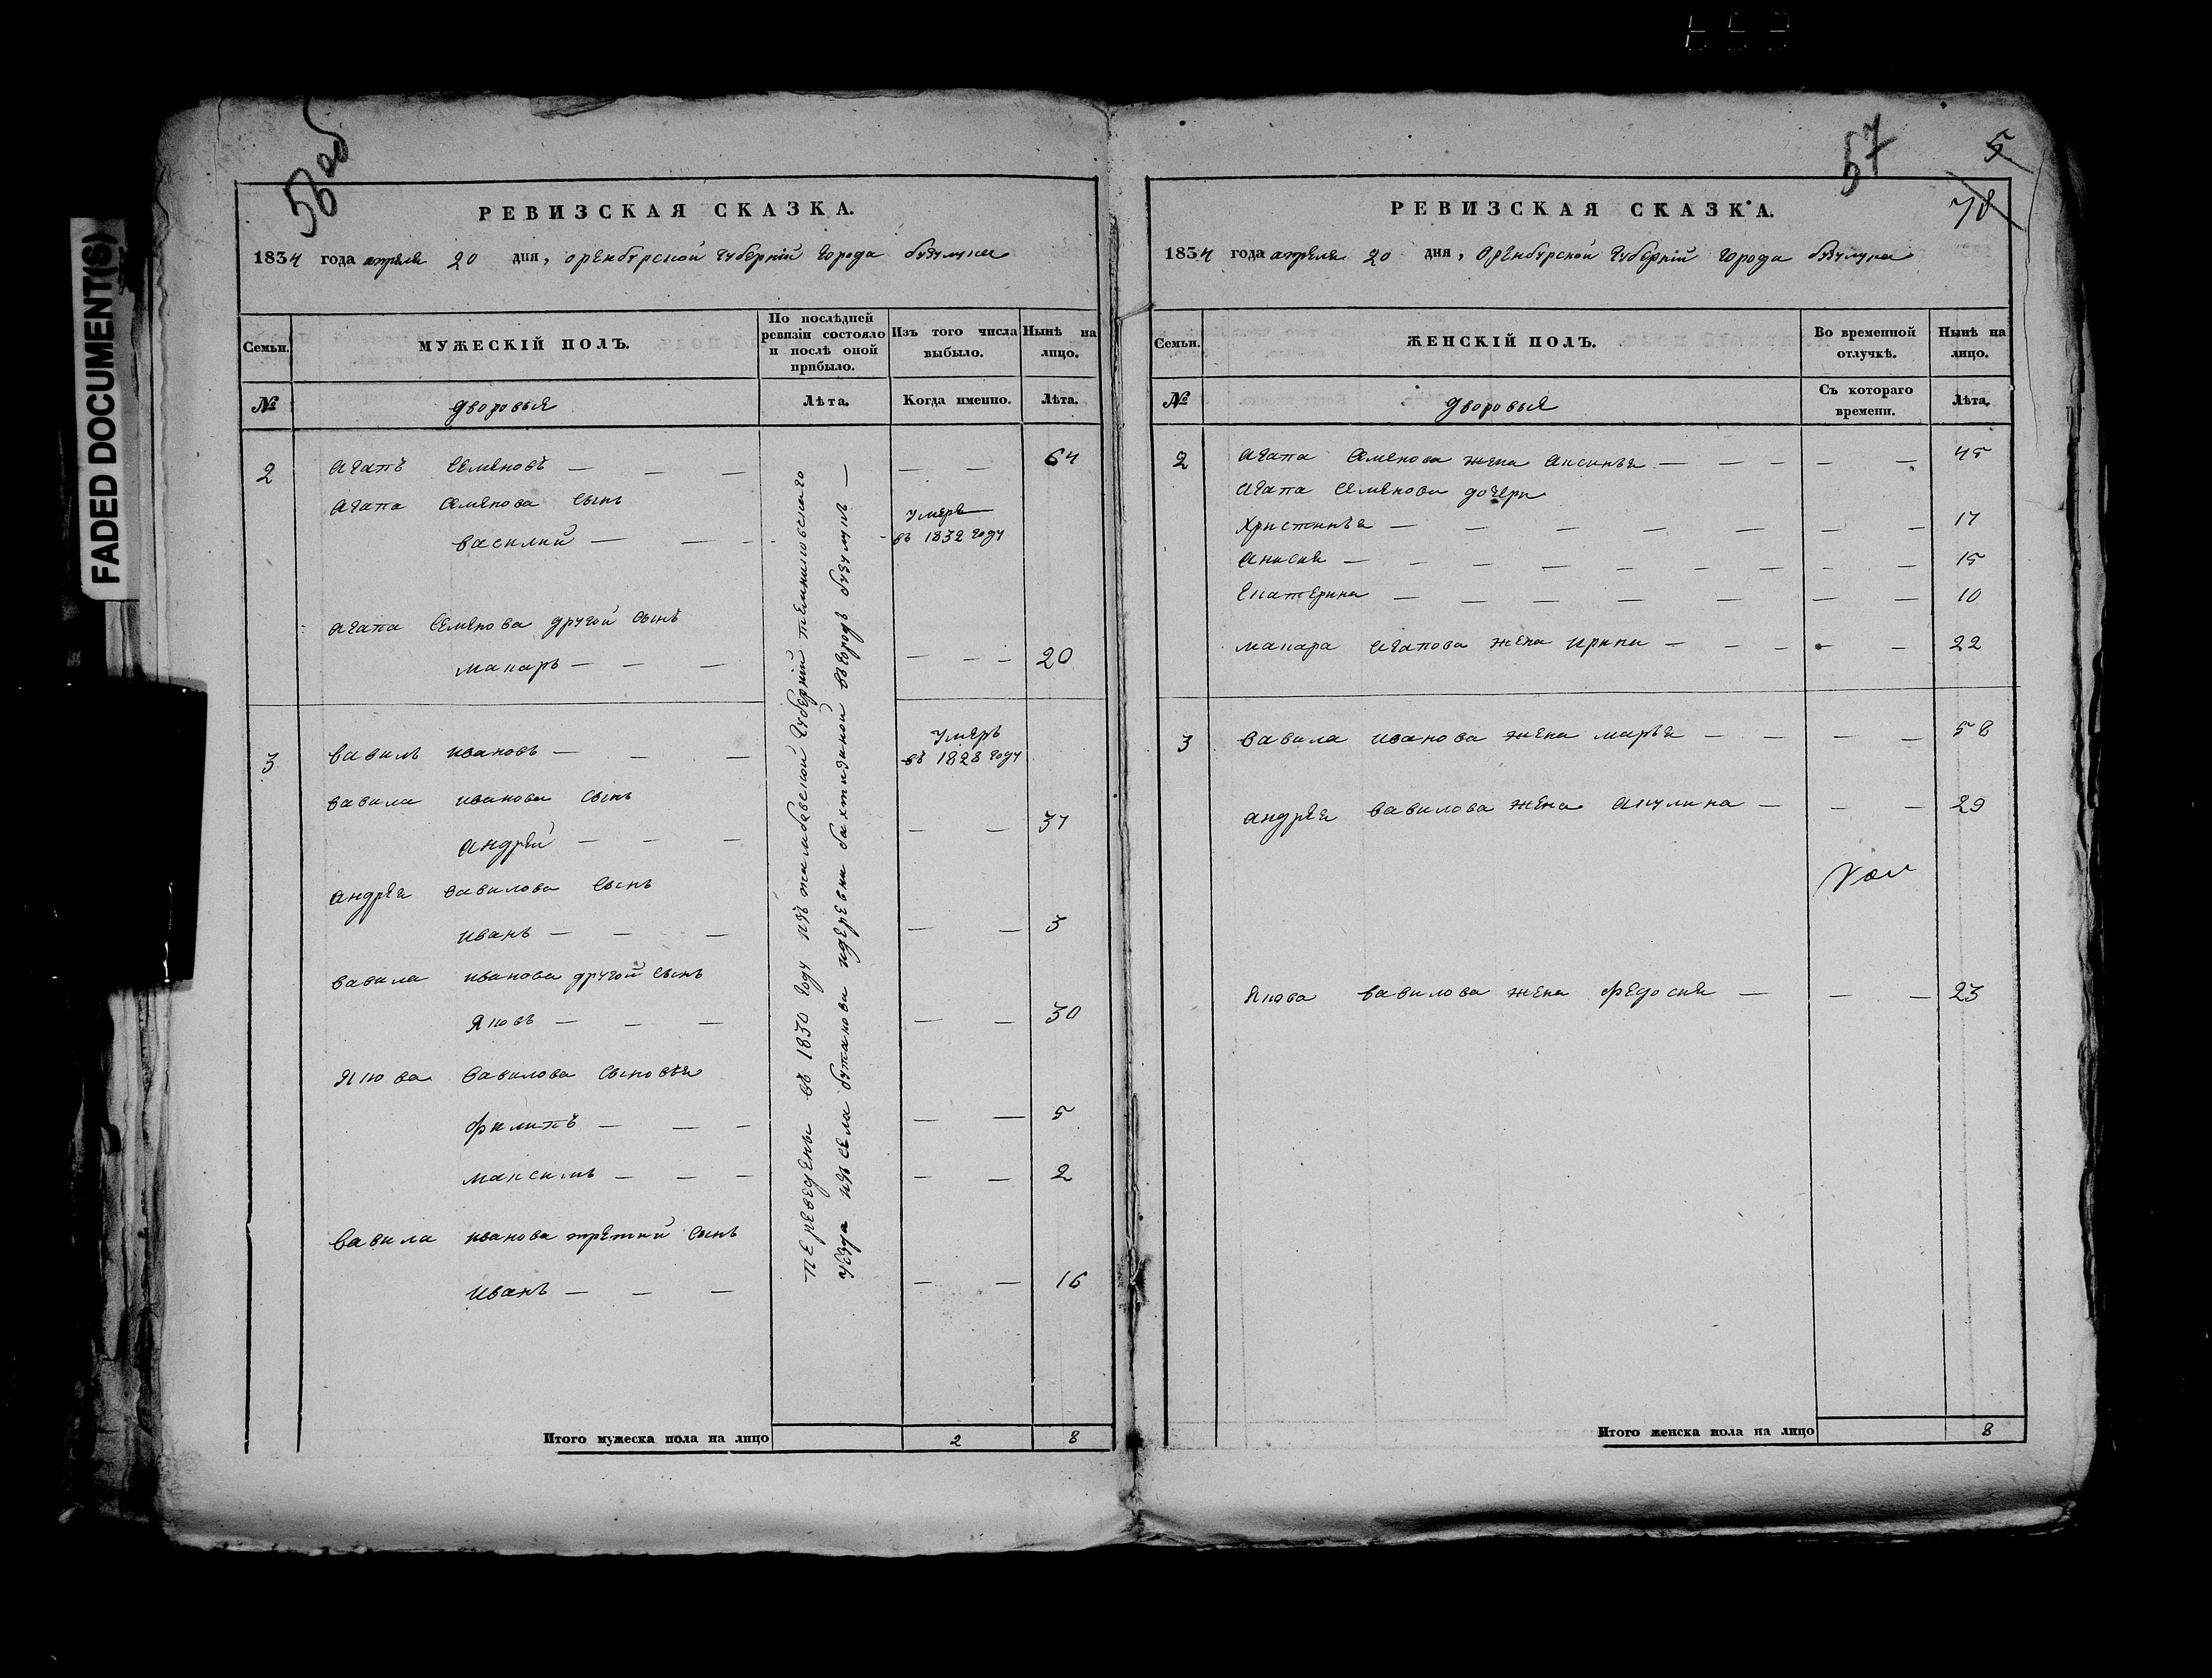 FADED DOCUMENT(S)
56 об
РЕВИЗСКАЯ СКАЗКА.
1834 года апреля 20 дня, оренбурской губерніи города бузулука
Семьи. МУЖЕСКІЙ ПОЛЪ. По послѣдней ревизіи состояло и послѣ оной прибыло. Изъ того числа выбыло. Нынѣ на лицо.
№ дворовыя Лѣта. Когда именно. Лѣта.
2 агапъ семеновъ — — — — — 64
агапа семенова сынъ умеръ
василий — — - въ 1832 году
агапа семенова другой сынъ
макаръ — — — — — — 20
3 вавилъ ивановъ — — — умеръ въ 1828 году
вавила иванова сынъ
андрей — — — — — 37
андрея вавилова сынъ
иванъ — — — — — 3
вавила иванова другой сынъ
яковъ — — — — — 30
якова вавилова сыновья
филипъ — — — — — 5
максимъ — — — — — 2
вавила иванова третий сынъ
иванъ — — — — — 16
переведены въ 1830 году изъ тамбовской губерніи темниковскаго
уезда изъ села бутакова идеревни бахтызиной въгородъ бузулукъ —
Итого мужеска пола на лицо 2 8
57
5
78
РЕВИЗСКАЯ СКАЗКА.
1834 года апреля 20 дня, оренбурской губерніи города бузулука
Семьи. ЖЕНСКІЙ ПОЛЪ. Во временной отлучкѣ. Нынѣ на лицо.
№ дворовыя Съ котораго времени. Лѣта.
2 агапа семенова жена аксинья — — — — — 45
агапа семенова дочери
христинья — — — — — — — 17
анисия — — — — — — — — — 15
екатерина — — — — — — — 10
макара агапова жена ирина — — — — 22
3 вавила иванова жена марья — — — — 58
андрея вавилова жена акулина — — — 29
якова вавилова жена федосия — — — 23
Итого женска пола на лицо 8